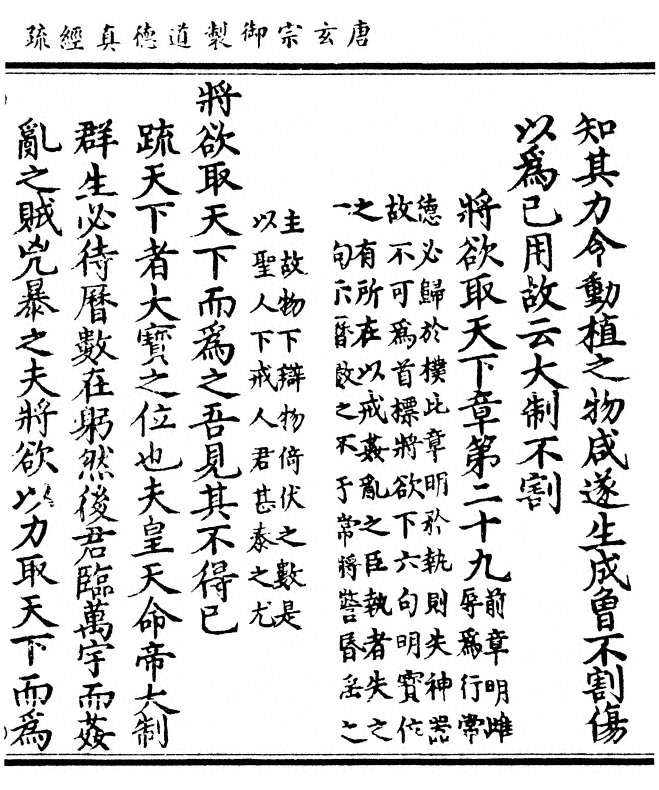 唐玄宗御製道德真經疏
知其力令動植之物咸遂生成曾不割傷
以爲己用故云大制不割
將欲取天下章第二十九
前章明雌
辱爲行常
德必歸於樸此章明於執則失神器
故不可爲首標將欲下六句明寶位
之有所在以戒姦亂之臣執者失之
一句示曆數之不于常將警昏之
主故物下辯物倚伏之數是
以聖人下戒人君甚泰之尤
將欲取天下而爲之吾見其不得已
疏天下者大寶之位也夫皇天命帝大制
群生必待曆數在躬然後君臨萬宇而姦
亂之賊兇暴之夫將欲以力取天下而爲